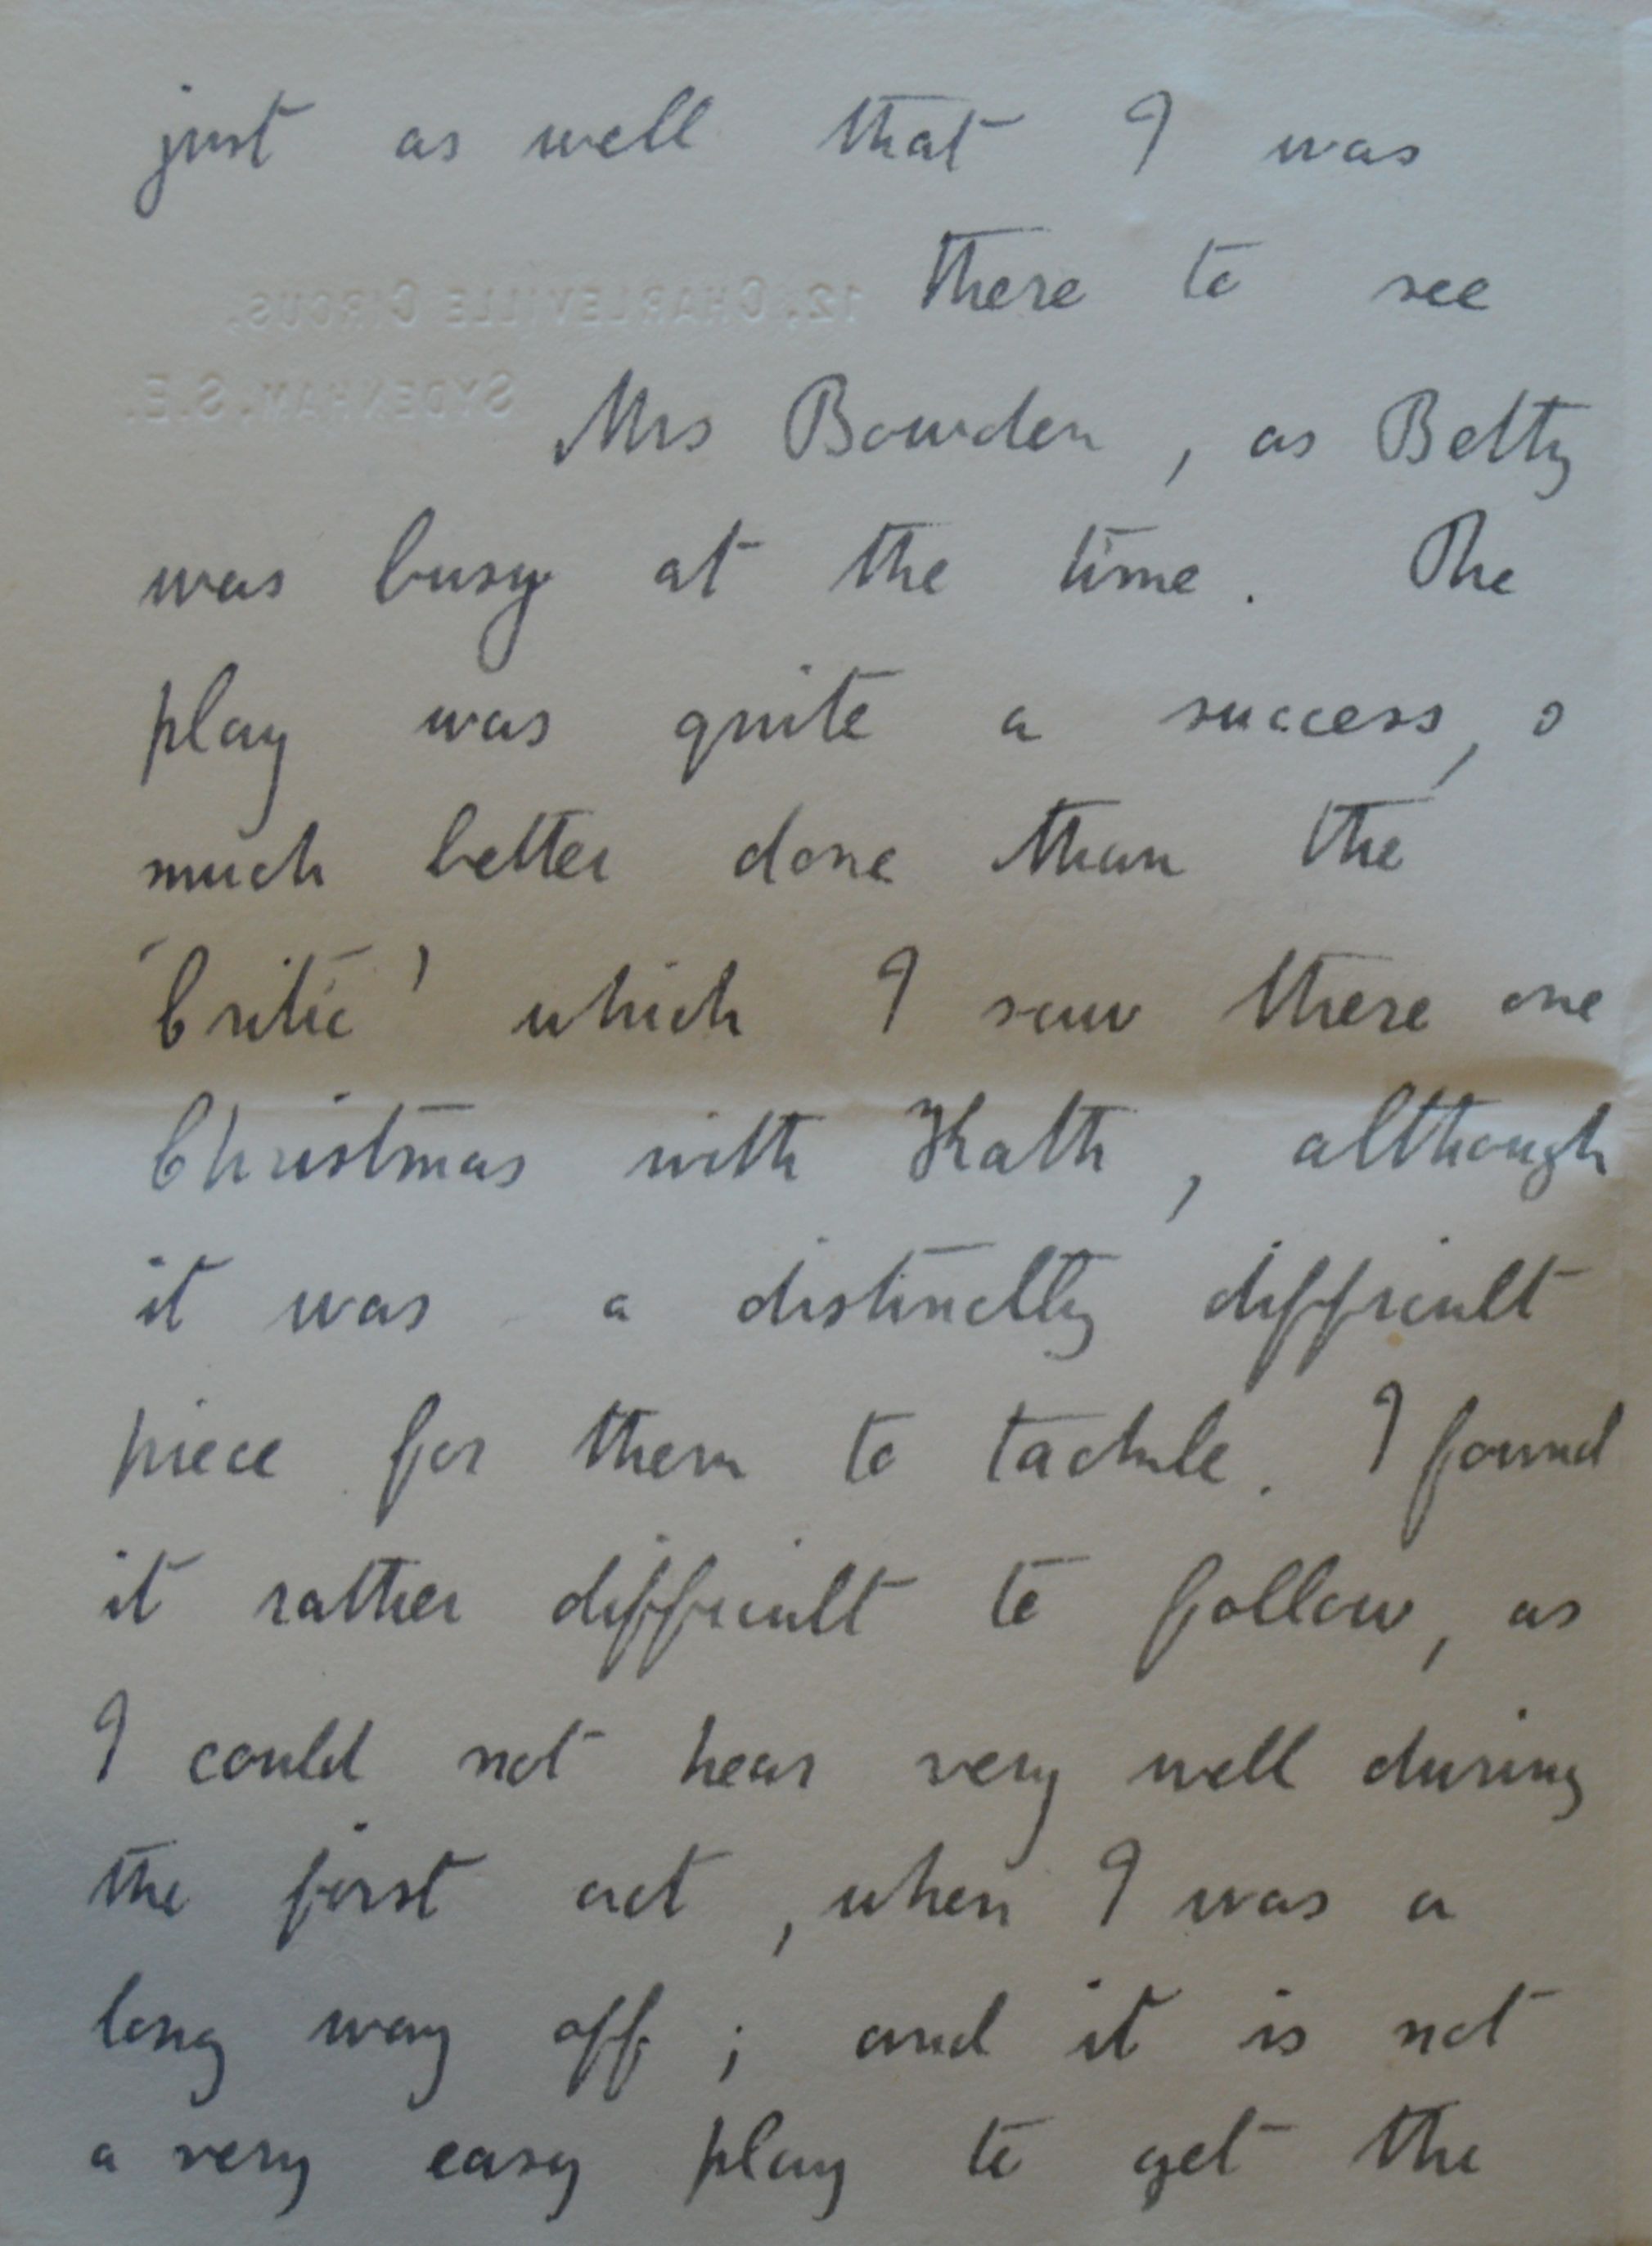 just as well that I was
12, CHARLEVILLE CIRCUS,
there to see
SYDENHAM. S.E.
Mrs Bowden, as Betty
was busy at the time. The
play was quite a success,
much better done than the
'Critic' which I saw there one
Christmas with Kath, although
it was a distinctly difficult
piece for them to tackle. I found
it rather difficult to follow, as
I could not hear very well during
the first act, when I was a
long way off; and it is not
a very easy play to get the